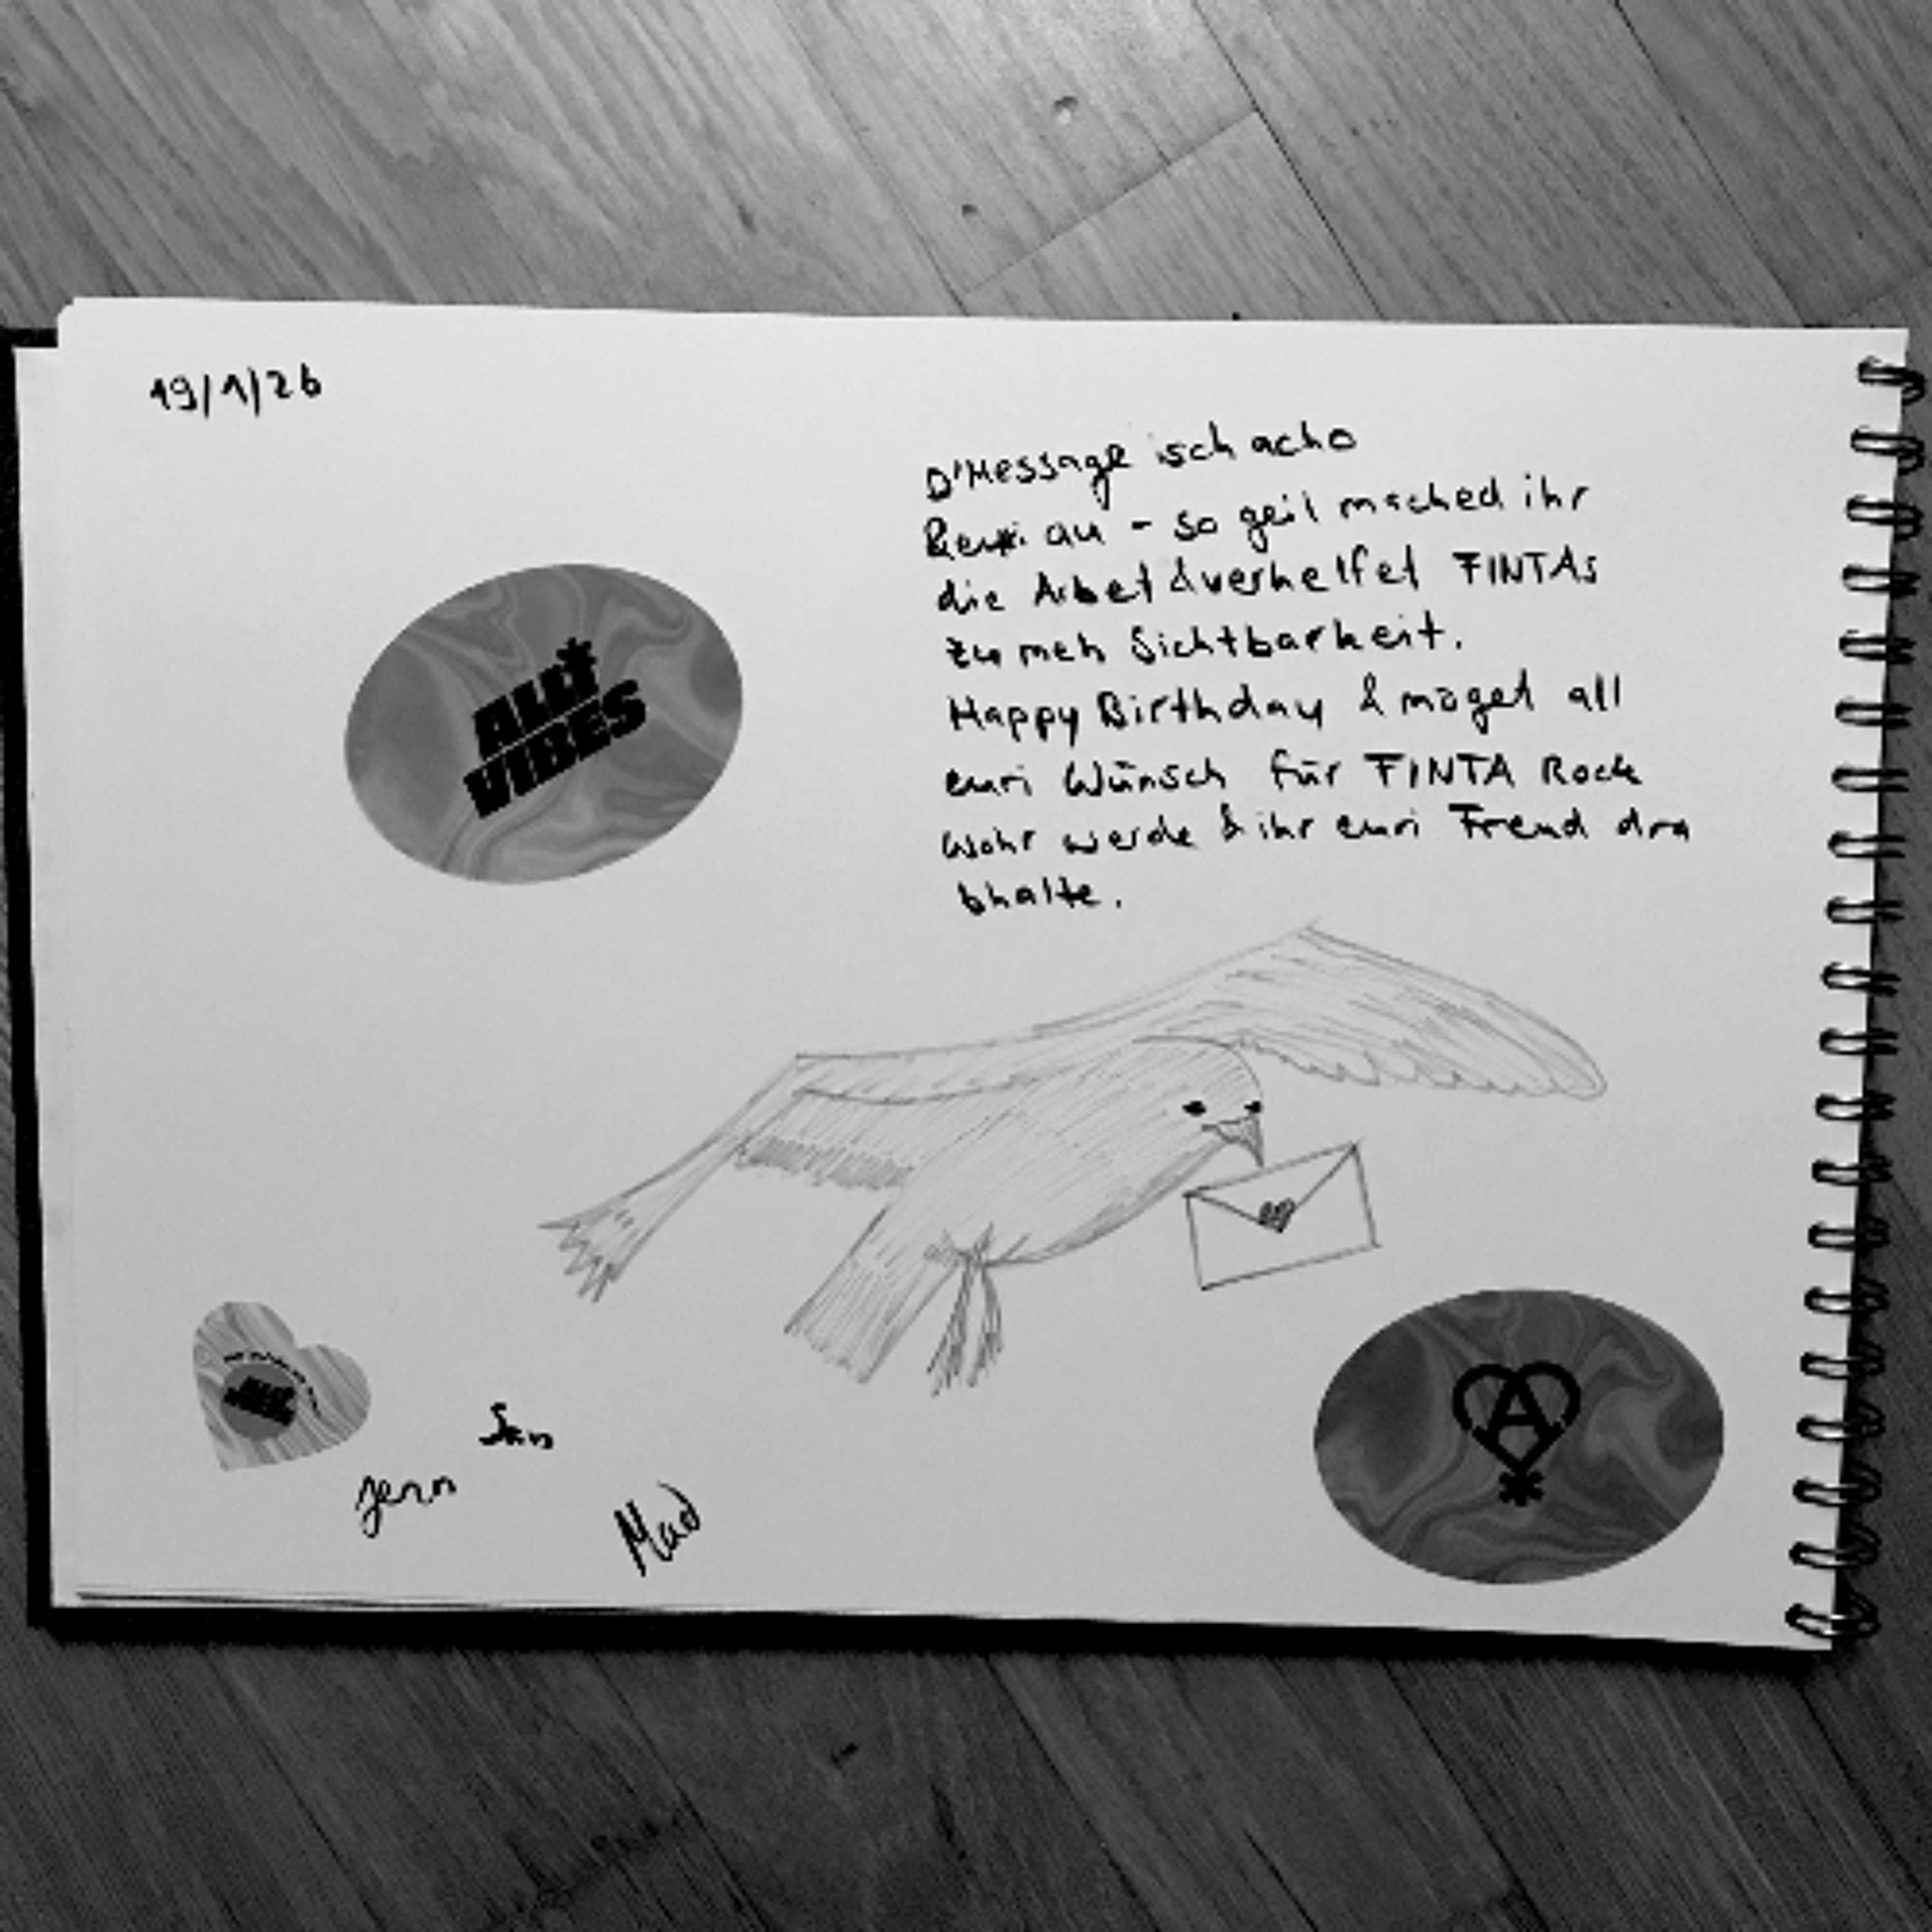 19/1/26
D'Message isch acho
au - so geil mached ihr
die Arbet & verhelfet FINTAs
zu meh Sichtbarkeit.
Happy Birthday & möget all
euri Wünsch für FINTA Rock
wohr werde & ihr euri Freud dra
bhalte.
ALLY*
VIBES
A
*
Jenn
Mad